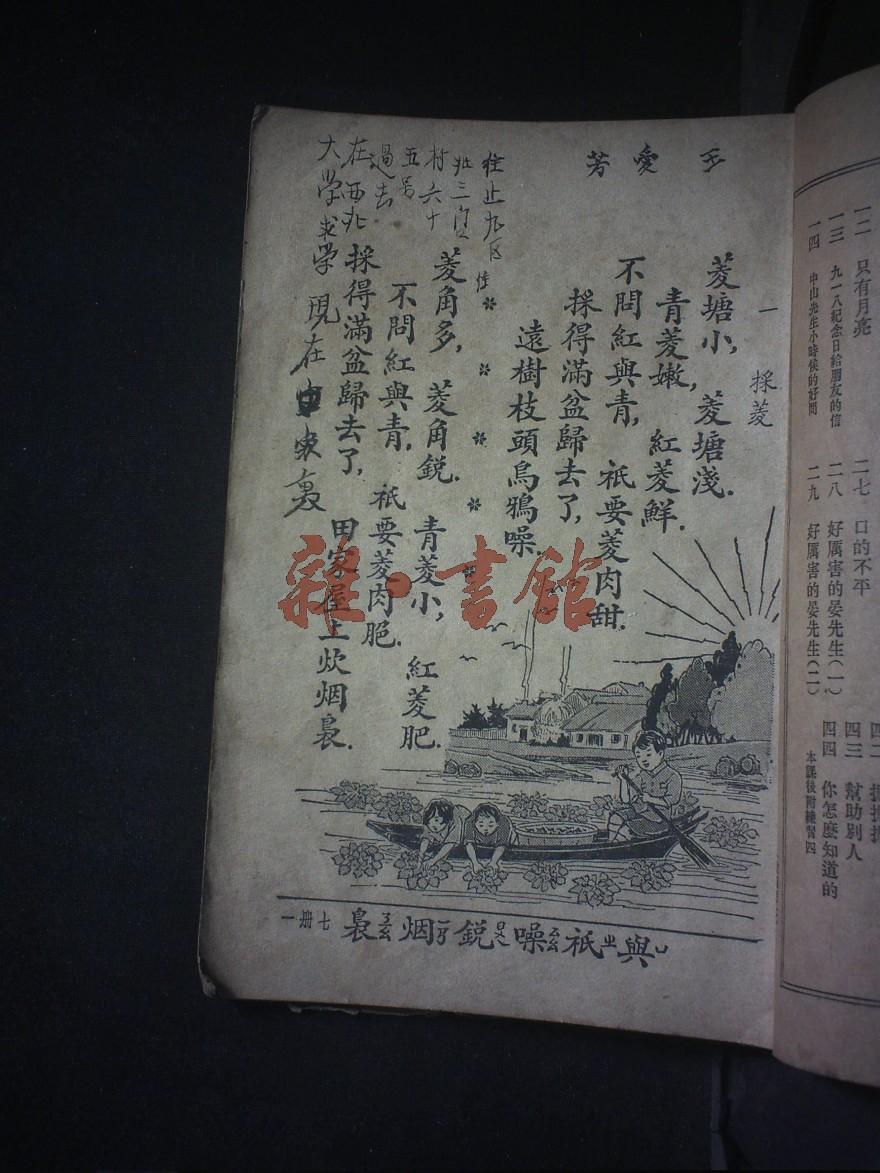 一二 只有月亮
一三 九一八紀念日給朋友的信
一四 中山先生小時候的好問
二七 口的不平
二八 好厲害的晏先生(一)
二九 好厲害的晏先生(二)
四三 幫助別人
四四 你怎麼知道的
本課後附練習四
愛芳
一 採菱
菱塘小，菱塘淺．
青菱嫩，紅菱鮮．
不問紅與青，祇要菱肉甜．
採得滿盆歸去了，
遠樹枝頭烏鴉噪．
菱角多，菱角銳．
青菱小，紅菱肥．
不問紅與青，祇要菱肉肥．
採得滿盆歸去了，
田家屋上炊烟裊．
住止九区
村六十
五号
過去
在西北
大学求学
現在
家裏
與ㄩ祇ㄓ噪ㄙㄠ銳ㄖㄨㄟ烟ㄧㄢ裊ㄋㄧㄠ
七册一
雜·書館